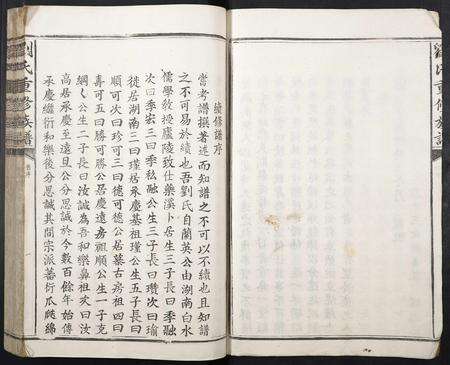 續修譜序
嘗考譜撰著述而知譜之不可以不續也且知譜
之不可易於續也吾劉氏自蘭英公由湖南白水
儒學教授廬陵致仕藥溪卜居生三子長曰季融
次曰季宏三曰季秋融公生三子長曰瓚次曰瑜
徙居湖南三曰瑾居承慶基祖瑾公生五子長曰
順可次曰珍可三曰德可德公居墓古房祖四曰
壽可五曰勝可勝公居慶遠房祖順公生一子克
綱綱公生二子長曰汝誠為吾和樂鼻祖次曰汝
高居承慶至遠旦公分思誠於今數百餘年始傳
承慶繼衍和樂後分思誠其間宗派蕃衍瓜瓞綿
劉氏重修族譜
劉氏重修族譜